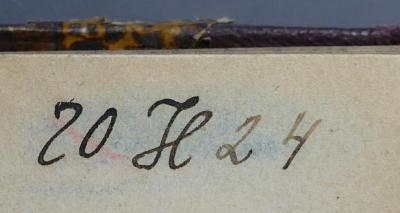 20 H 24